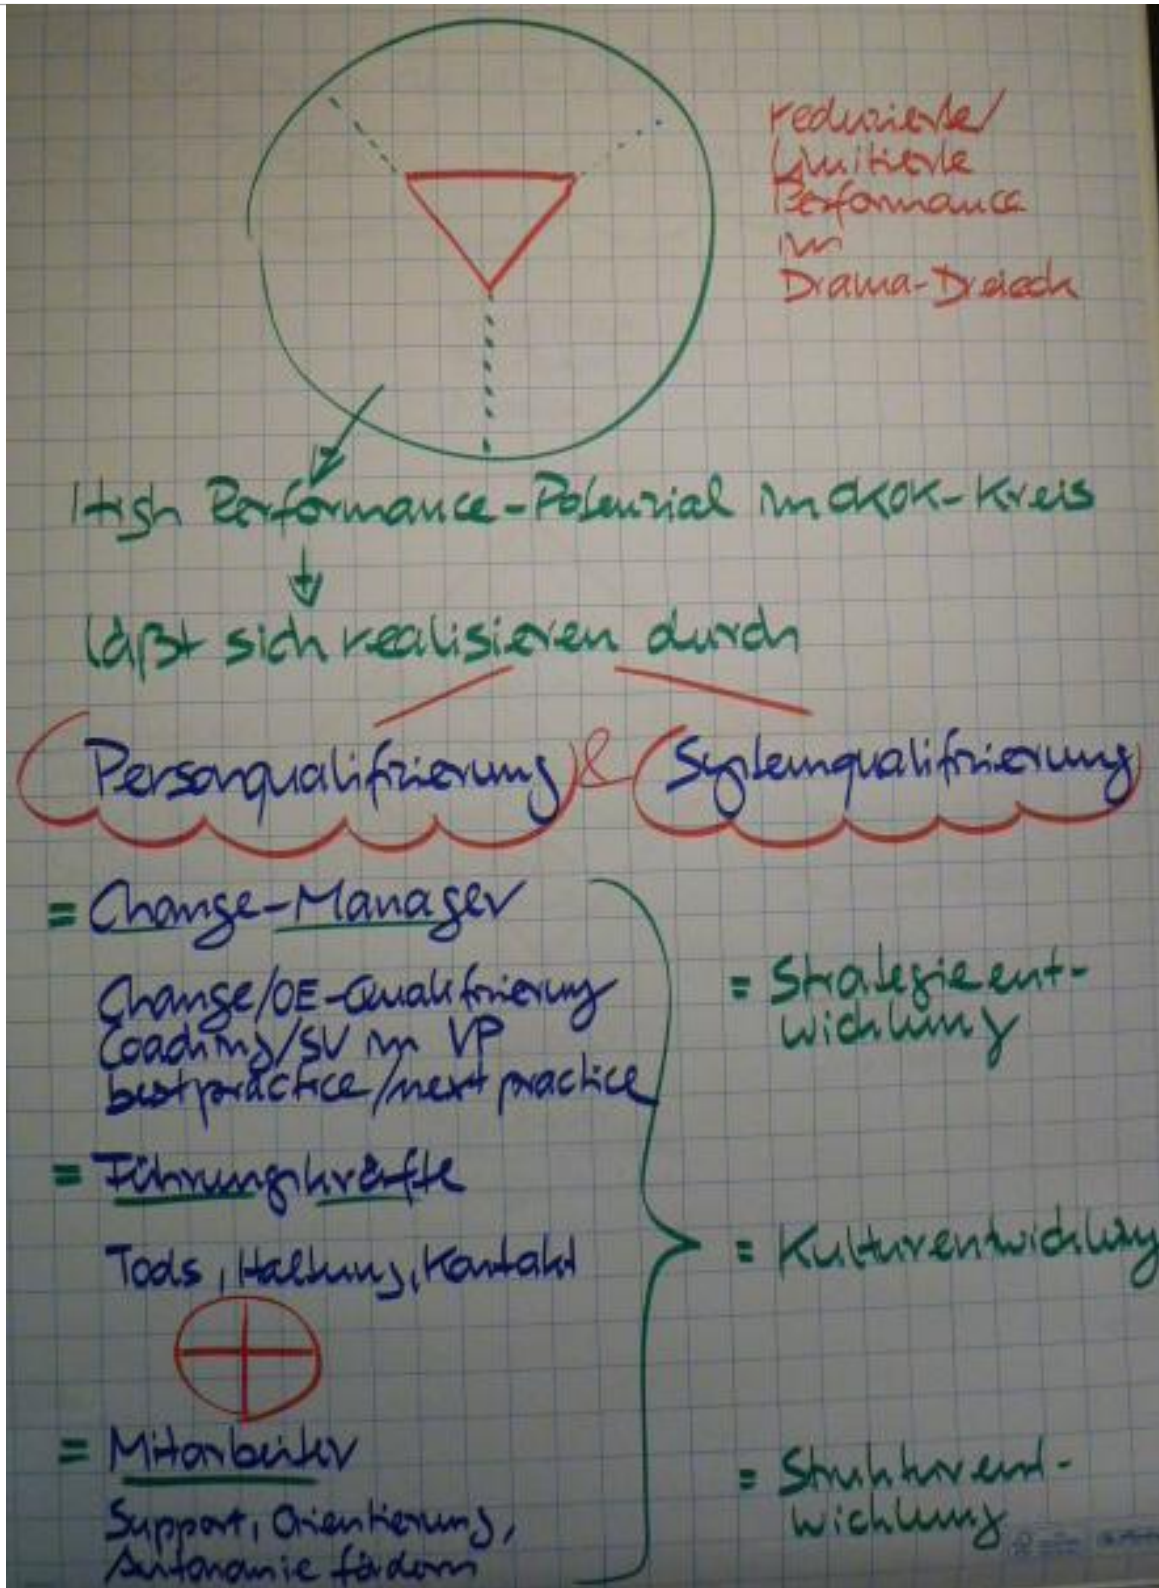 reduzierte/
limitierte
Performance
im
Drama-Dreieck
High Performance-Potenzial im okok-Kreis
läßt sich realisieren durch
Personqualifizierung & Systemqualifizierung
= Change-Manager
Change/OE-Qualifizierung
Coaching/SV im VP
best practice/next practice
= Führungskräfte
Tools, Haltung, Kontakt
= Mitarbeiter
Support, Orientierung,
Autonomie fördern
= Strategieent-
wicklung
= Kulturentwicklung
= Strukturent-
wicklung